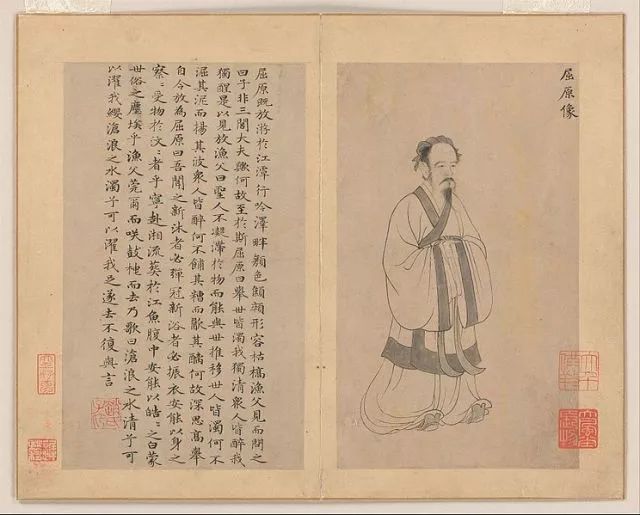 屈原像
屈原既放游於江潭行吟澤畔顏色顦顇形容枯槁漁父見而問之
曰子非三閭大夫歟何故至於斯屈原曰舉世皆濁我獨清衆人皆醉我
獨醒是以見放漁父曰聖人不凝滯於物而能與世推移世人皆濁何不
淈其泥而揚其波衆人皆醉何不餔其糟而歠其醨何故深思高舉
自令放為屈原曰吾聞之新沐者必彈冠新浴者必振衣安能以身之
察〻受物於汶〻者乎寧赴湘流葬於江魚腹中安能以皓〻之白蒙
世俗之塵埃乎漁父莞爾而咲鼓枻而去乃歌曰滄浪之水清子可
以濯我纓滄浪之水濁子可以濯我足遂去不復與言